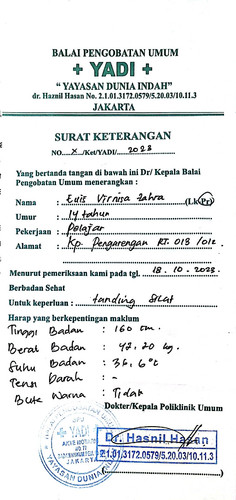 BALAI PENGOBATAN UMUM
+ YADI +
“ YAYASAN DUNIA INDAH”
dr. Haznil Hasan No. 2.1.01.3172.0579/5.20.03/10.11.3
JAKARTA
SURAT KETERANGAN
NO. X /Ket/YADI/ 2023
Yang bertanda tangan di bawah ini Dr/ Kepala Balai
Pengobatan Umum menerangkan :
Nama : Euis Virnisa Zahra (Lk/Pr)
Umur : 14 tahun
Pekerjaan : Pelajar
Alamat : Kp. Pengarengan RT. 013 /012
Menurut pemeriksaan kami pada tgl. 18. 10. 2023.
Berbadan Sehat
Untuk keperluan : tanding silat
Harap yang berkepentingan maklum
Tinggi Badan : 160 cm.
Berat Badan : 42,20 kg.
Suhu Badan : 36,6°C
Tensi Darah : -
Buta Warna : Tidak
Dokter/Kepala Poliklinik Umum
Dr. Hasnil Hasan
2.1.01.3172.0579/5.20.03/10.11.3
YADI
JAKARTA
YAYASAN DUNIA INDAH